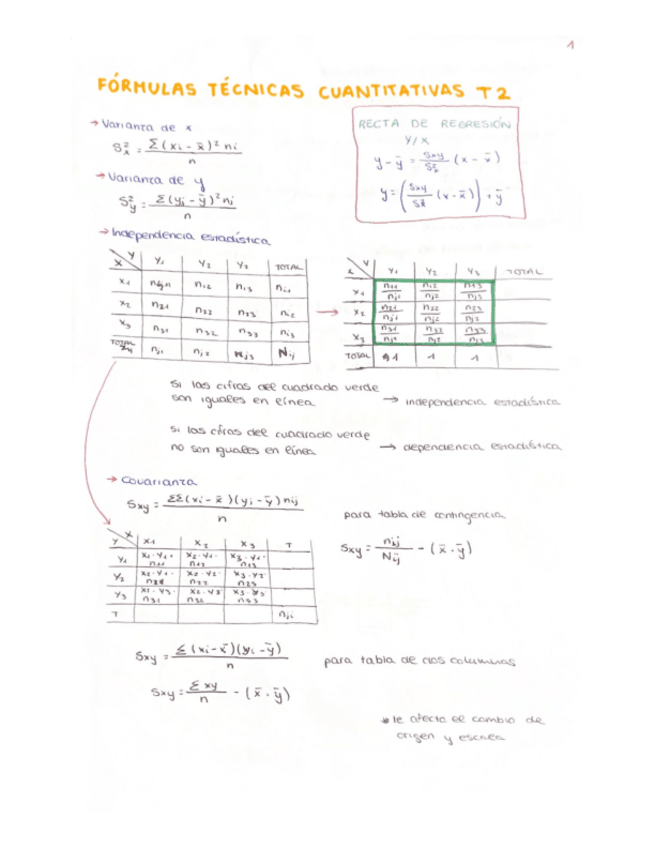 1
FÓRMULAS TÉCNICAS CUANTITATIVAS T2
→ Varianza de x
S²x = Σ(xi - x̄)² ni / n
→ Varianza de y
S²y = Σ(yi - ȳ)² ni / n
RECTA DE REGRESIÓN
Y/X
y - ȳ = Sxy / S²x (x - x̄)
y = (Sxy / S²x (x - x̄)) + ȳ
→ Independencia estadística
X Y Y1 Y2 Y3 TOTAL
X1 n12 n13
X2 n21 n22
X3 n31 n32 n33
TOTAL nj1 nj2 nj3 Nij
→
X Y Y1 Y2 Y3 TOTAL
X1 n11/nj1 n12/nj2 n13/nj3
X2 n21/nj1 n22/nj2 n23/nj3
X3 n31/nj1 n32/nj2 n33/nj3
TOTAL 1 1 1
Si las cifras del cuadrado verde
son iguales en línea → independencia estadística
Si las cifras del cuadrado verde
no son iguales en línea → dependencia estadística
→ Covarianza
Sxy = ΣΣ(xi - x̄)(yi - ȳ) nij / n
para tabla de contingencia
Sxy = nij / Nij - (x̄ · ȳ)
Y X X1 X2 X3 T
Y1 X1·Y1· n11 X2·Y1· n12 X3·Y1· n13
Y2 X2·Y2· n22 X3·Y2· n23
Y3 X1·Y3· n31 X2·Y3 X3·Y3
T
Sxy = Σ(xi - x̄)(yi - ȳ) / n
para tabla de dos columnas
Sxy = Σxy / n - (x̄ · ȳ)
* le afecta el cambio de
origen y escala